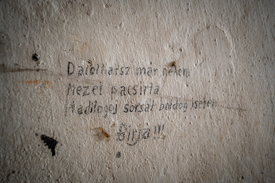 Dalolhatsz már nekem
Mezei pacsirta
Hadifogoj sorsát boldog Isten
Birja!!!